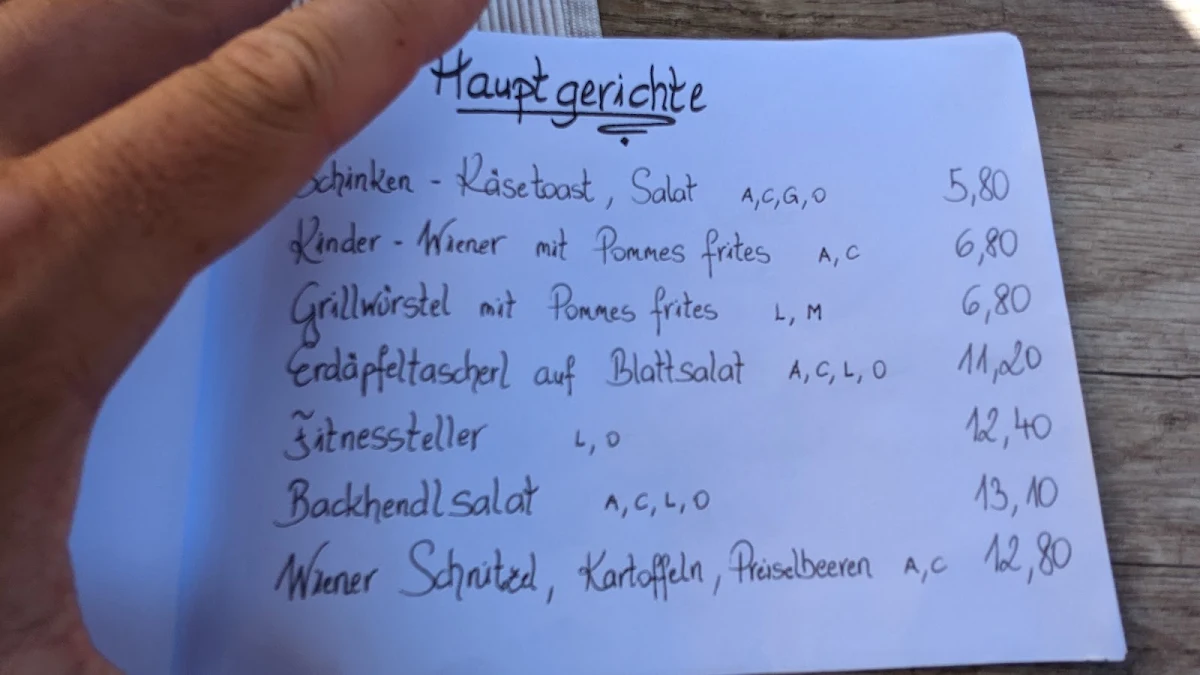 Hauptgerichte
Schinken - Käsetoast, Salat A,C,G,O 5,80
Kinder - Wiener mit Pommes frites A,C 6,80
Grillwürstel mit Pommes frites L, M 6,80
Erdäpfeltascherl auf Blattsalat A,C,L,O 11,20
Fitnessteller L,O 12,40
Backhendlsalat A,C,L,O 13,10
Wiener Schnitzel, Kartoffeln, Preiselbeeren A,C 12,80